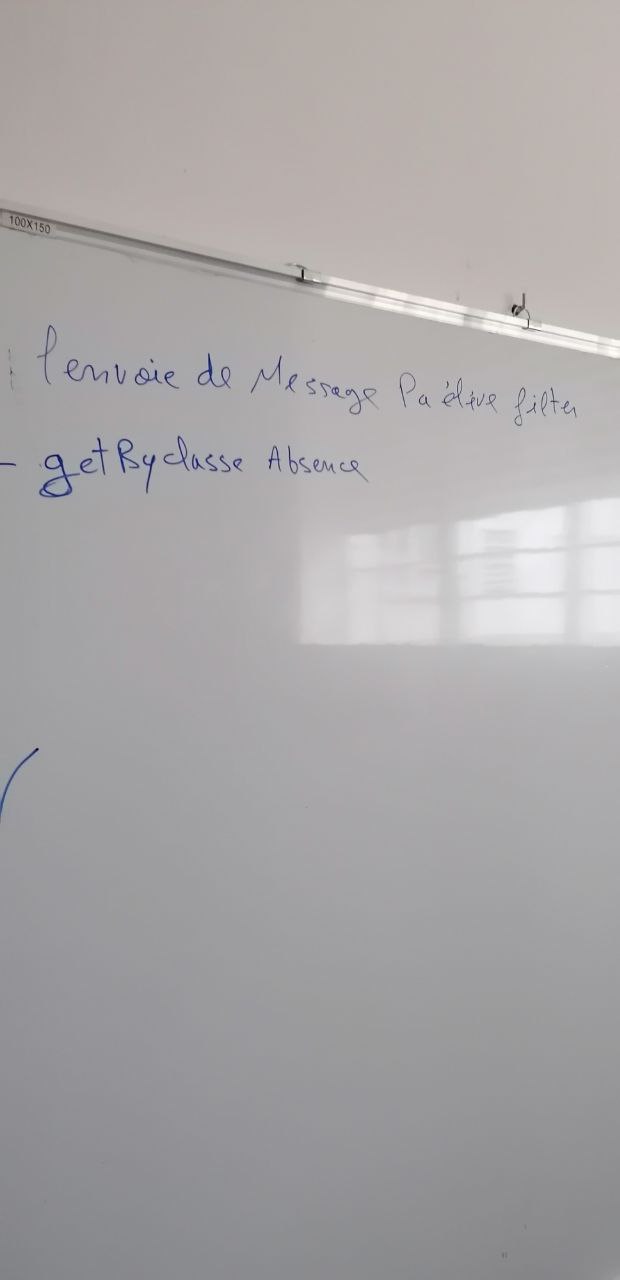 100X150
l'envoie de Message Pa élève filter
- getByclasse Absence